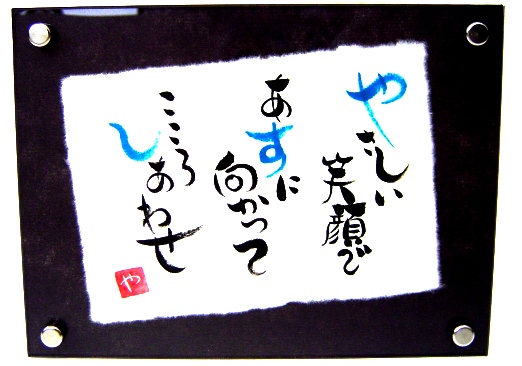 やさしい
笑顔で
あすに
向かって
こころ
しあわせ
や